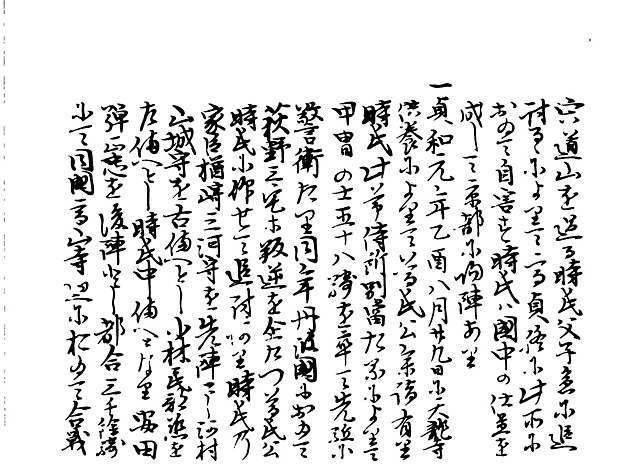 宍道山を過る時氏父子急に追
討るによりて高貞終に此所に
おゐて自害す時氏ハ国中の仕置を
成して京都に帰陣あり
一貞和元年乙酉八月廿九日に天龍寺
供養によりて尊氏公参詣有り
時氏此節侍所別当たるによりて
甲冑の士五十八騎を率て先駈に
警衛たり同年丹波国におゐて
荻野三宅等叛逆を企たつ尊氏公
時氏に仰せて追討あり時氏乃
家臣楢崎三河守を先陣とし河村
山城守を右備へとし小林民部丞を
左備へとし時氏中備へとなり安田
弾正忠を後陣とし都合三千余騎
にて同国高山寺辺に於ゐて合戦